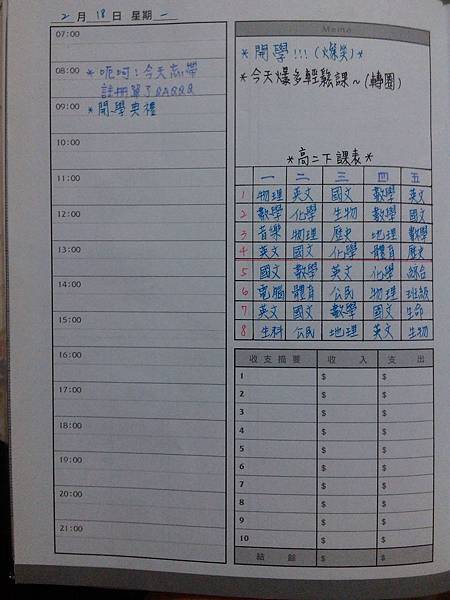 2月18日 星期一
07:00
08:00 *呃呵!今天忘帶
註冊單了QAQQQ
09:00 *開學典禮
10:00
11:00
12:00
13:00
14:00
15:00
16:00
17:00
18:00
19:00
20:00
21:00
Memo
*開學!!!(爆笑)*
*今天爆多輕鬆課~(轉圈)
*高二下課表*
一 二 三 四 五
1 物理 英文 國文 數學 英文
2 數學 化學 生物 數學 國文
3 音樂 物理 歷史 地理 數學
4 英文 國文 化學 體育 歷史
5 國文 數學 英文 化學 綜合
6 電腦 體育 公民 物理 班級
7 英文 國文 數學 國文 生命
8 生科 公民 地理 英文 生物
收支摘要 收入 支出
1 $ $
2 $ $
3 $ $
4 $ $
5 $ $
6 $ $
7 $ $
8 $ $
9 $ $
10 $ $
結餘 $ $